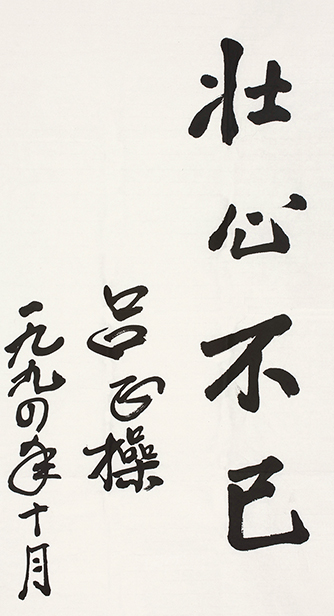 壮心不已
吕正操
一九九四年十月